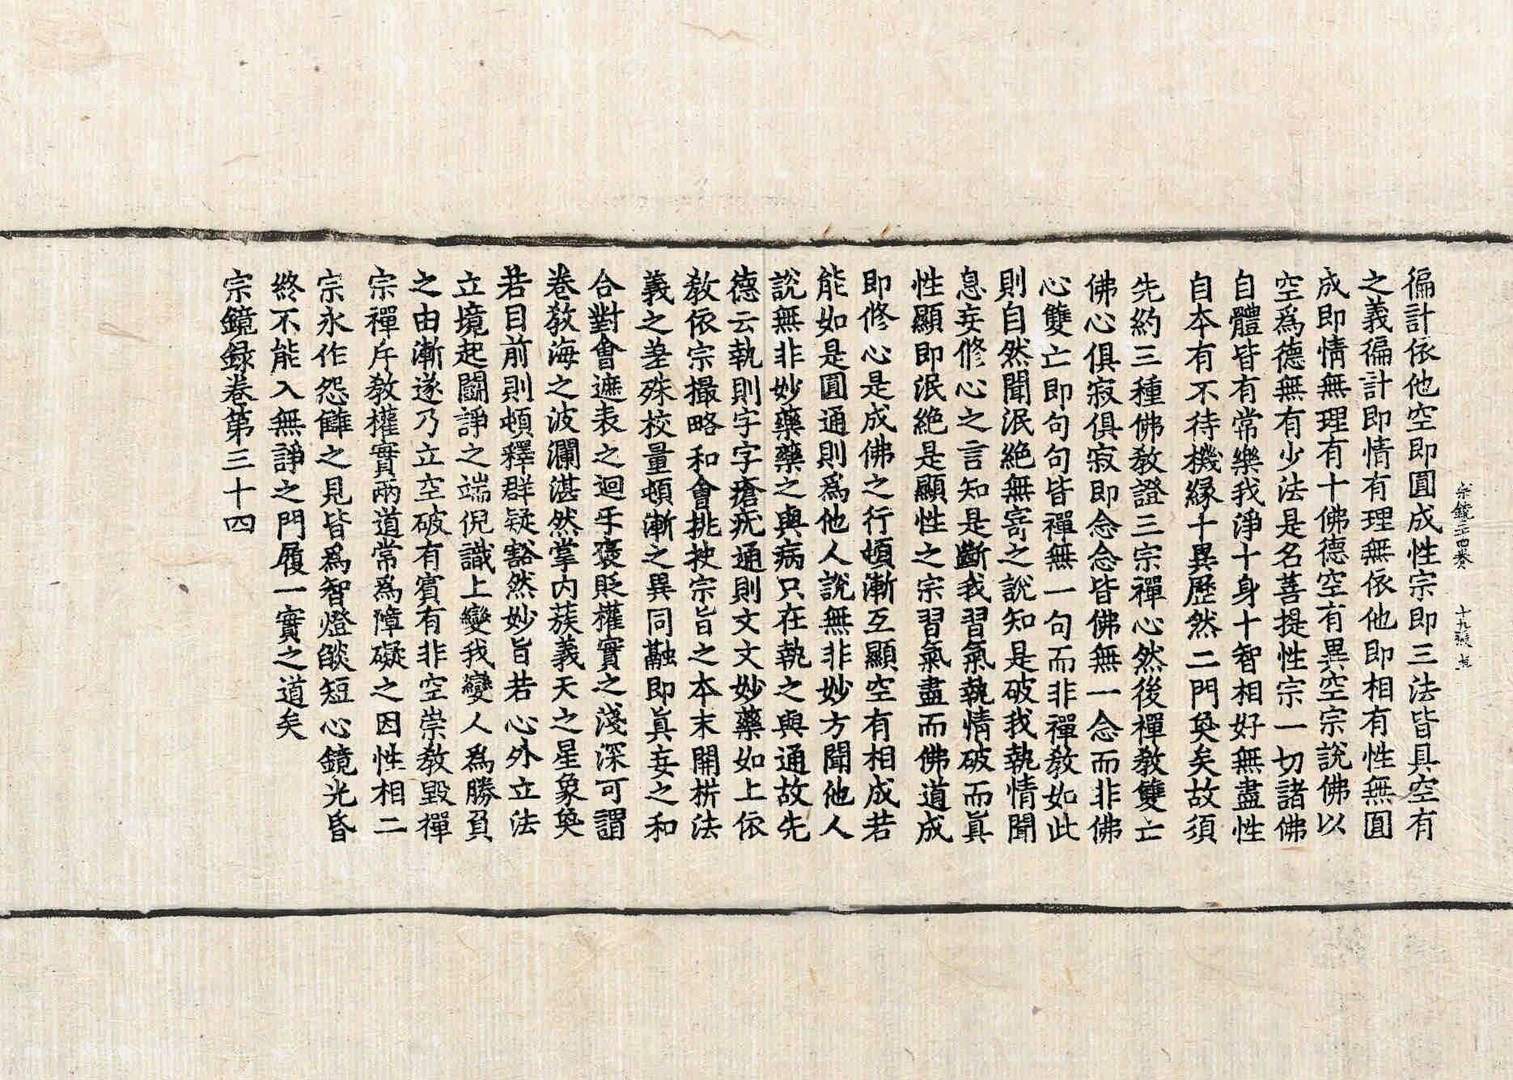 宗鏡三十四卷
徧計依他空即圓成性宗即三法皆具空有
之義徧計即情有理無依他即相有性無圓
成即情無理有十佛德空有異空宗說佛以
空爲德無有少法是名菩提性宗一切諸佛
自體皆有常樂我淨十身十智相好無盡性
自本有不待機緣十異歷然二門奐矣故須
先約三種佛敎證三宗禪心然後禪敎雙亡
佛心俱寂俱寂即念念皆佛無一念而非佛
心雙亡即句句皆禪無一句而非禪敎如此
則自然聞泯絶無寄之說知是破我執情聞
息妄修心之言知是斷我習氣執情破而眞
性顯即泯絶是顯性之宗習氣盡而佛道成
即修心是成佛之行頓漸互顯空有相成若
能如是圓通則爲他人說無非妙方聞他人
說無非妙藥藥之與病只在執之與通故先
德云執則字字瘡疣通則文文妙藥如上依
敎依宗撮略和會挑抉宗旨之本末開拆法
義之差殊校量頓漸之異同融即眞妄之和
合對會遮表之迴互褒貶權實之淺深可謂
卷敎海之波瀾湛然掌內蔟義天之星象奐
若目前則頓釋群疑豁然妙旨若心外立法
立境起鬪諍之端倪識上變我變人爲勝負
之由漸遂乃立空破有賓有非空崇敎毀禪
宗禪斥敎權實兩道常爲障礙之因性相二
宗永作怨讎之見皆爲智燈燄短心鏡光昏
終不能入無諍之門履一實之道矣
宗鏡録卷第三十四